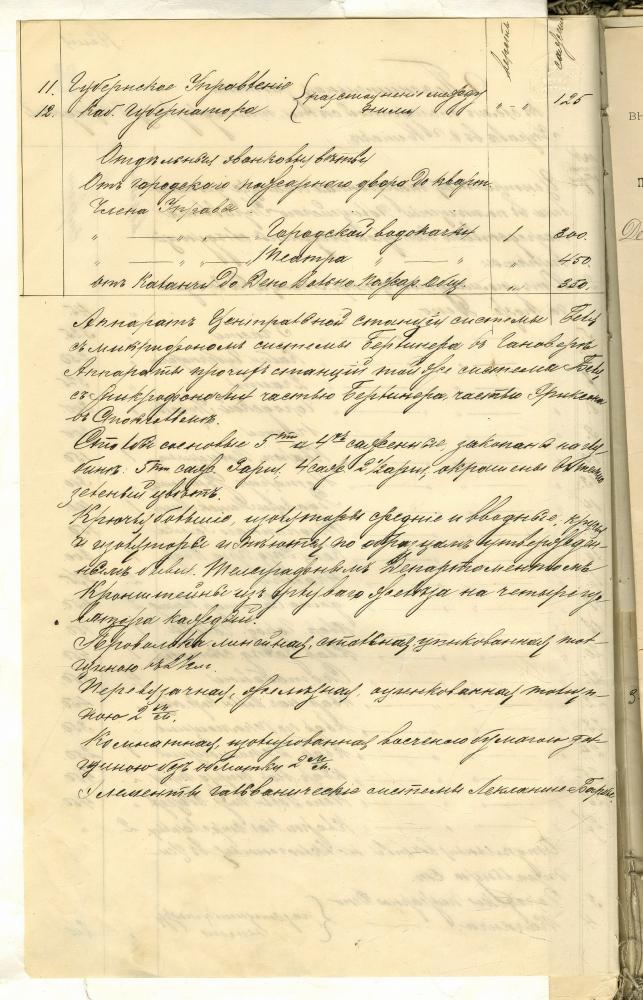 версты сажени
11. Губернское Управленіе
12. Каб. Губернатора { разстояніе между ними „ „ 125
Отдѣльныя звонковыя вѣтви
Отъ городского пожарного двора до кварт.
Члена Управы
„ — „ — Городской водокачки 1 300.
„ — „ — Театра „ — „ „ 450.
отъ Каланчи до Депо Вольно Пожар. Общ. „ 350.
Аппаратъ Центральной станціи системы Бель
съ микрофономъ системы Берлинера въ Гановерѣ
Аппараты прочихъ станцій той же системы Бель,
съ микрофонами частью Берлинера, частью Эриксона
въ Стокгольмѣ.
Столбы сосновые 5ти и 4хъ саженные, закопаны на глу
бинѣ: 5ти саж. 3 арш., 4 саж. 2 1/2 арш., окрашены въ темно
зеленый цвѣтъ.
Крючья большіе, изоляторы средніе и вводные, крючья
и изоляторы имѣются по образцамъ утвержден-
нымъ бывш. Телеграфнымъ Департаментомъ
Кронштейны изъ углового желѣза на четыре изо
лятора каждый.
Проволока линейная, стальная оцинкованная тол-
щиною въ 2 м/м.
Перевязочная, желѣзная, оцинкованная толщи-
ною 2 м/м.
Комнатная, изолированная вощеною бумагою тол-
щиною безъ обмотки 2 м/м.
Элементы гальваническіе системы Лекланше-Барбье.